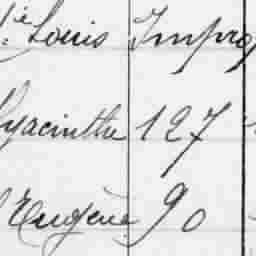 Louis Impro
Hyacinthe 127
Eugène 90